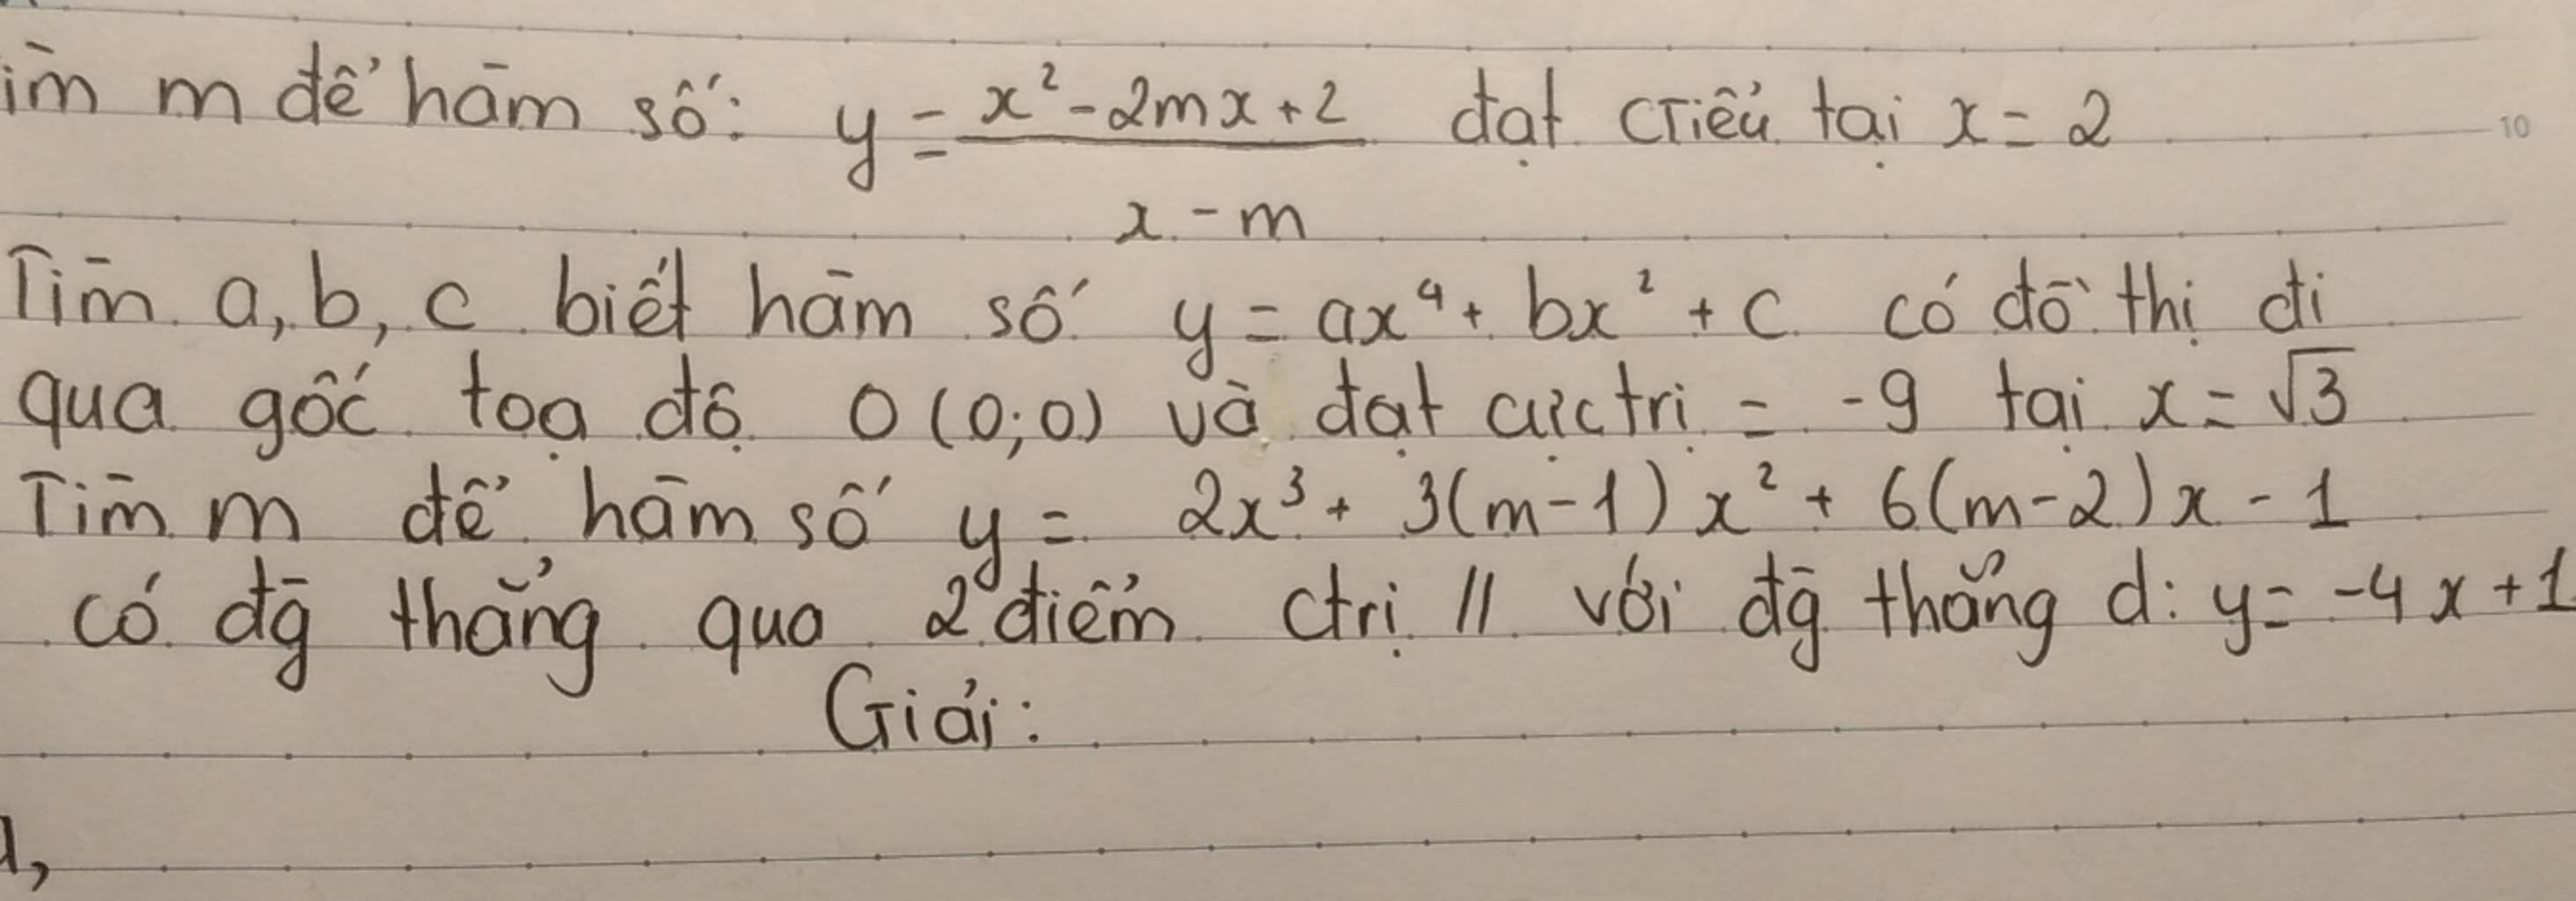 ìm m để hàm số: y = \frac{x² - 2mx + 2}{x - m} đạt cTiểu tại x = 2
10
Tìm a, b, c biết hàm số y = ax⁴ + bx² + c có đồ thị đi
qua gốc toạ độ O (0;0) và đạt cực trị = -9 tại x = √3
Tìm m để hàm số y = 2x³ + 3(m-1) x² + 6(m-2)x - 1
có đg thẳng qua 2 điểm ctrị // với đg thẳng d: y = -4x + 1
Giải:
1,